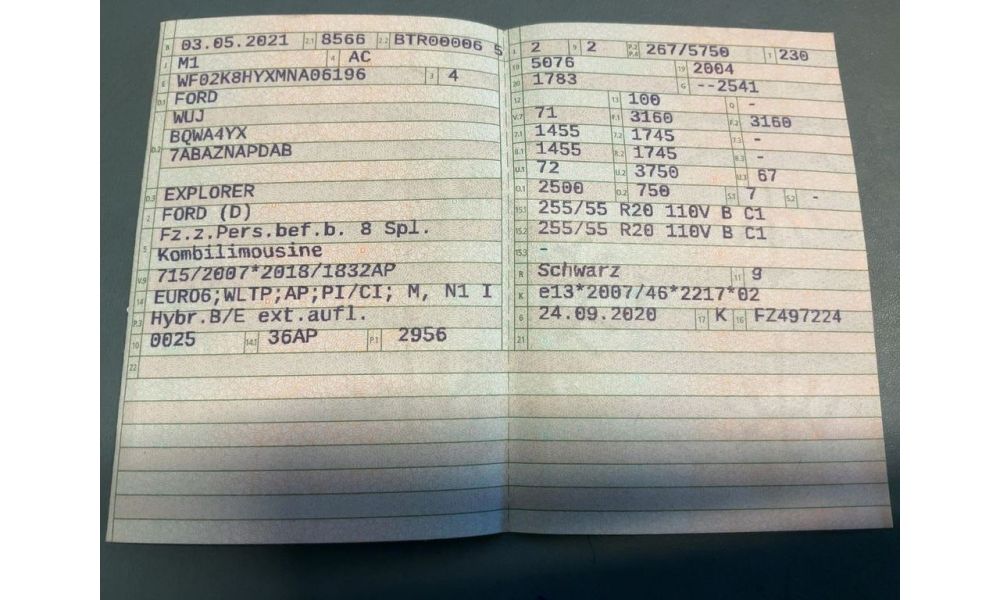 B 03.05.2021 2.1 8566 2.2 BTR00006 5
J M1 4 AC
E WF02K8HYXMNA06196 3 4
D.1 FORD
WUJ
D.2 BQWA4YX
7ABAZNAPDAB
D.3 EXPLORER
2 FORD (D)
5 Fz.z.Pers.bef.b. 8 Spl.
Kombilimousine
V.9 715/2007*2018/1832AP
14 EURO6;WLTP;AP;PI/CI; M, N1 I
P.3 Hybr.B/E ext.aufl.
10 0025 14.1 36AP P.1 2956
22
L 2 9 2 P.2 P.4 267/5750 T 230
18 5076 19 2004
20 1783 G --2541
12 13 100 Q -
V.7 71 F.1 3160 F.2 3160
7.1 1455 7.2 1745 7.3 -
8.1 1455 8.2 1745 8.3 -
U.1 72 U.2 3750 U.3 67
O.1 2500 O.2 750 S.1 7 S.2 -
15.1 255/55 R20 110V B C1
15.2 255/55 R20 110V B C1
15.3 -
R Schwarz 11 9
K e13*2007/46*2217*02
6 24.09.2020 17 K 16 FZ497224
21